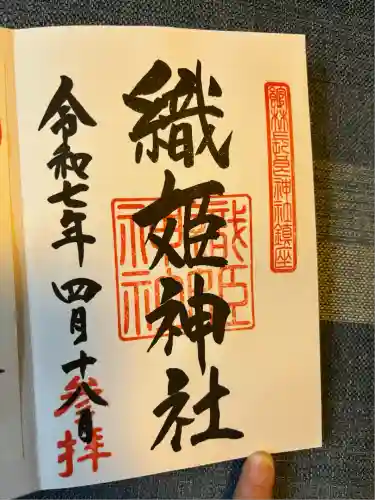 館林長良神社鎮座
織姫神社
織姫神社
令和七年四月十八日
参拝